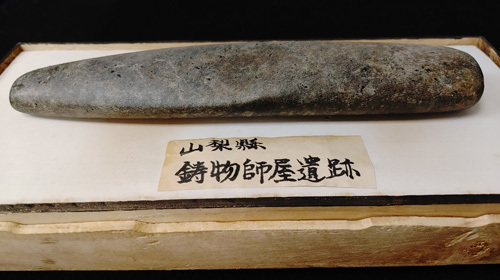 山梨縣
鋳物師屋遺跡